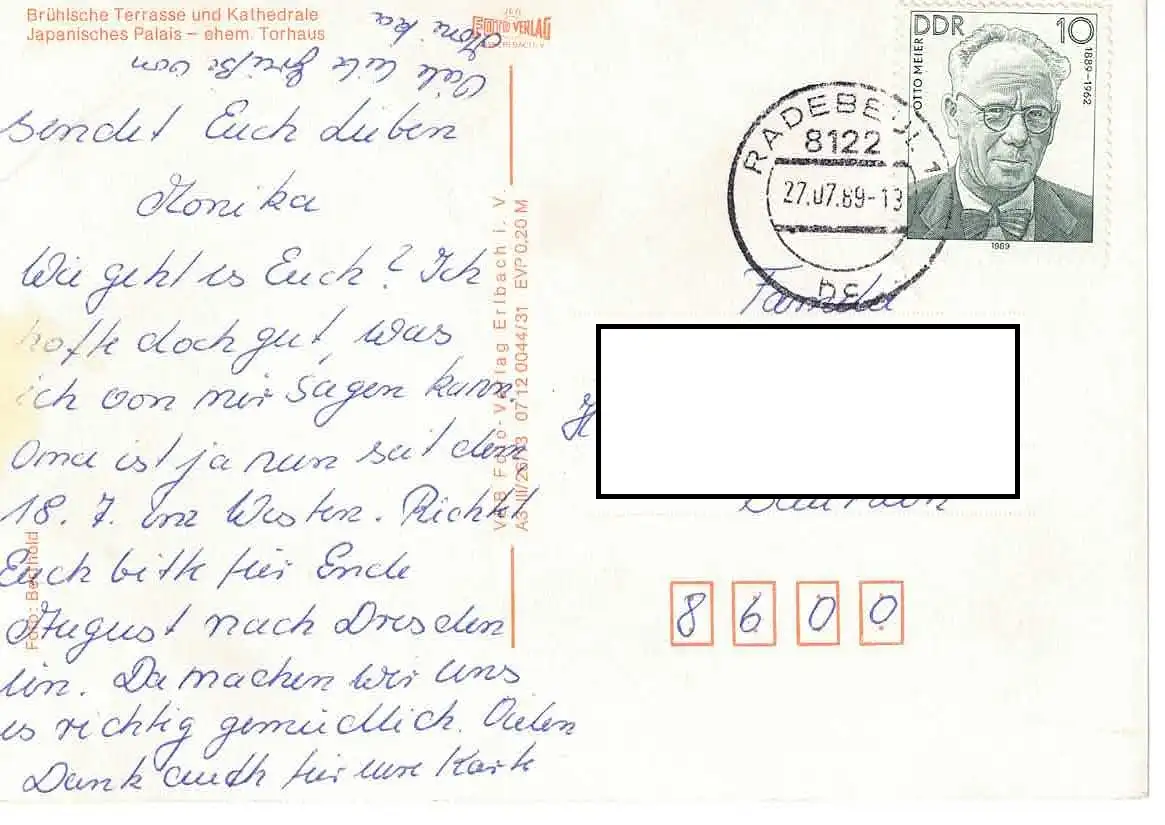 Brühlische Terrasse und Kathedrale
Japanisches Palais – ehem. Torhaus
FOTO VERLAG
Viele liebe Grüße von
Monika
sendet Euch Lieben
Monika
Wie geht es Euch? Ich
hofte doch gut, was
ich von mir sagen kann.
Oma ist ja nun seit dem
18. 7. im Westen. Richtet
Euch bitte für Ende
August nach Dresden
ein. Da machen wir uns
es richtig gemüdlich. Vielen
Dank auch für eure Karte
Foto: Berthold
VEB Foto-Verlag Erlbach i. V.
A3 III/26/13 07 12 0044/31 EVP 0,20 M
RADEBEUL 1
8122
27.07.89-13
DDR 10
OTTO MEIER
1889–1962
1989
Familie
8600